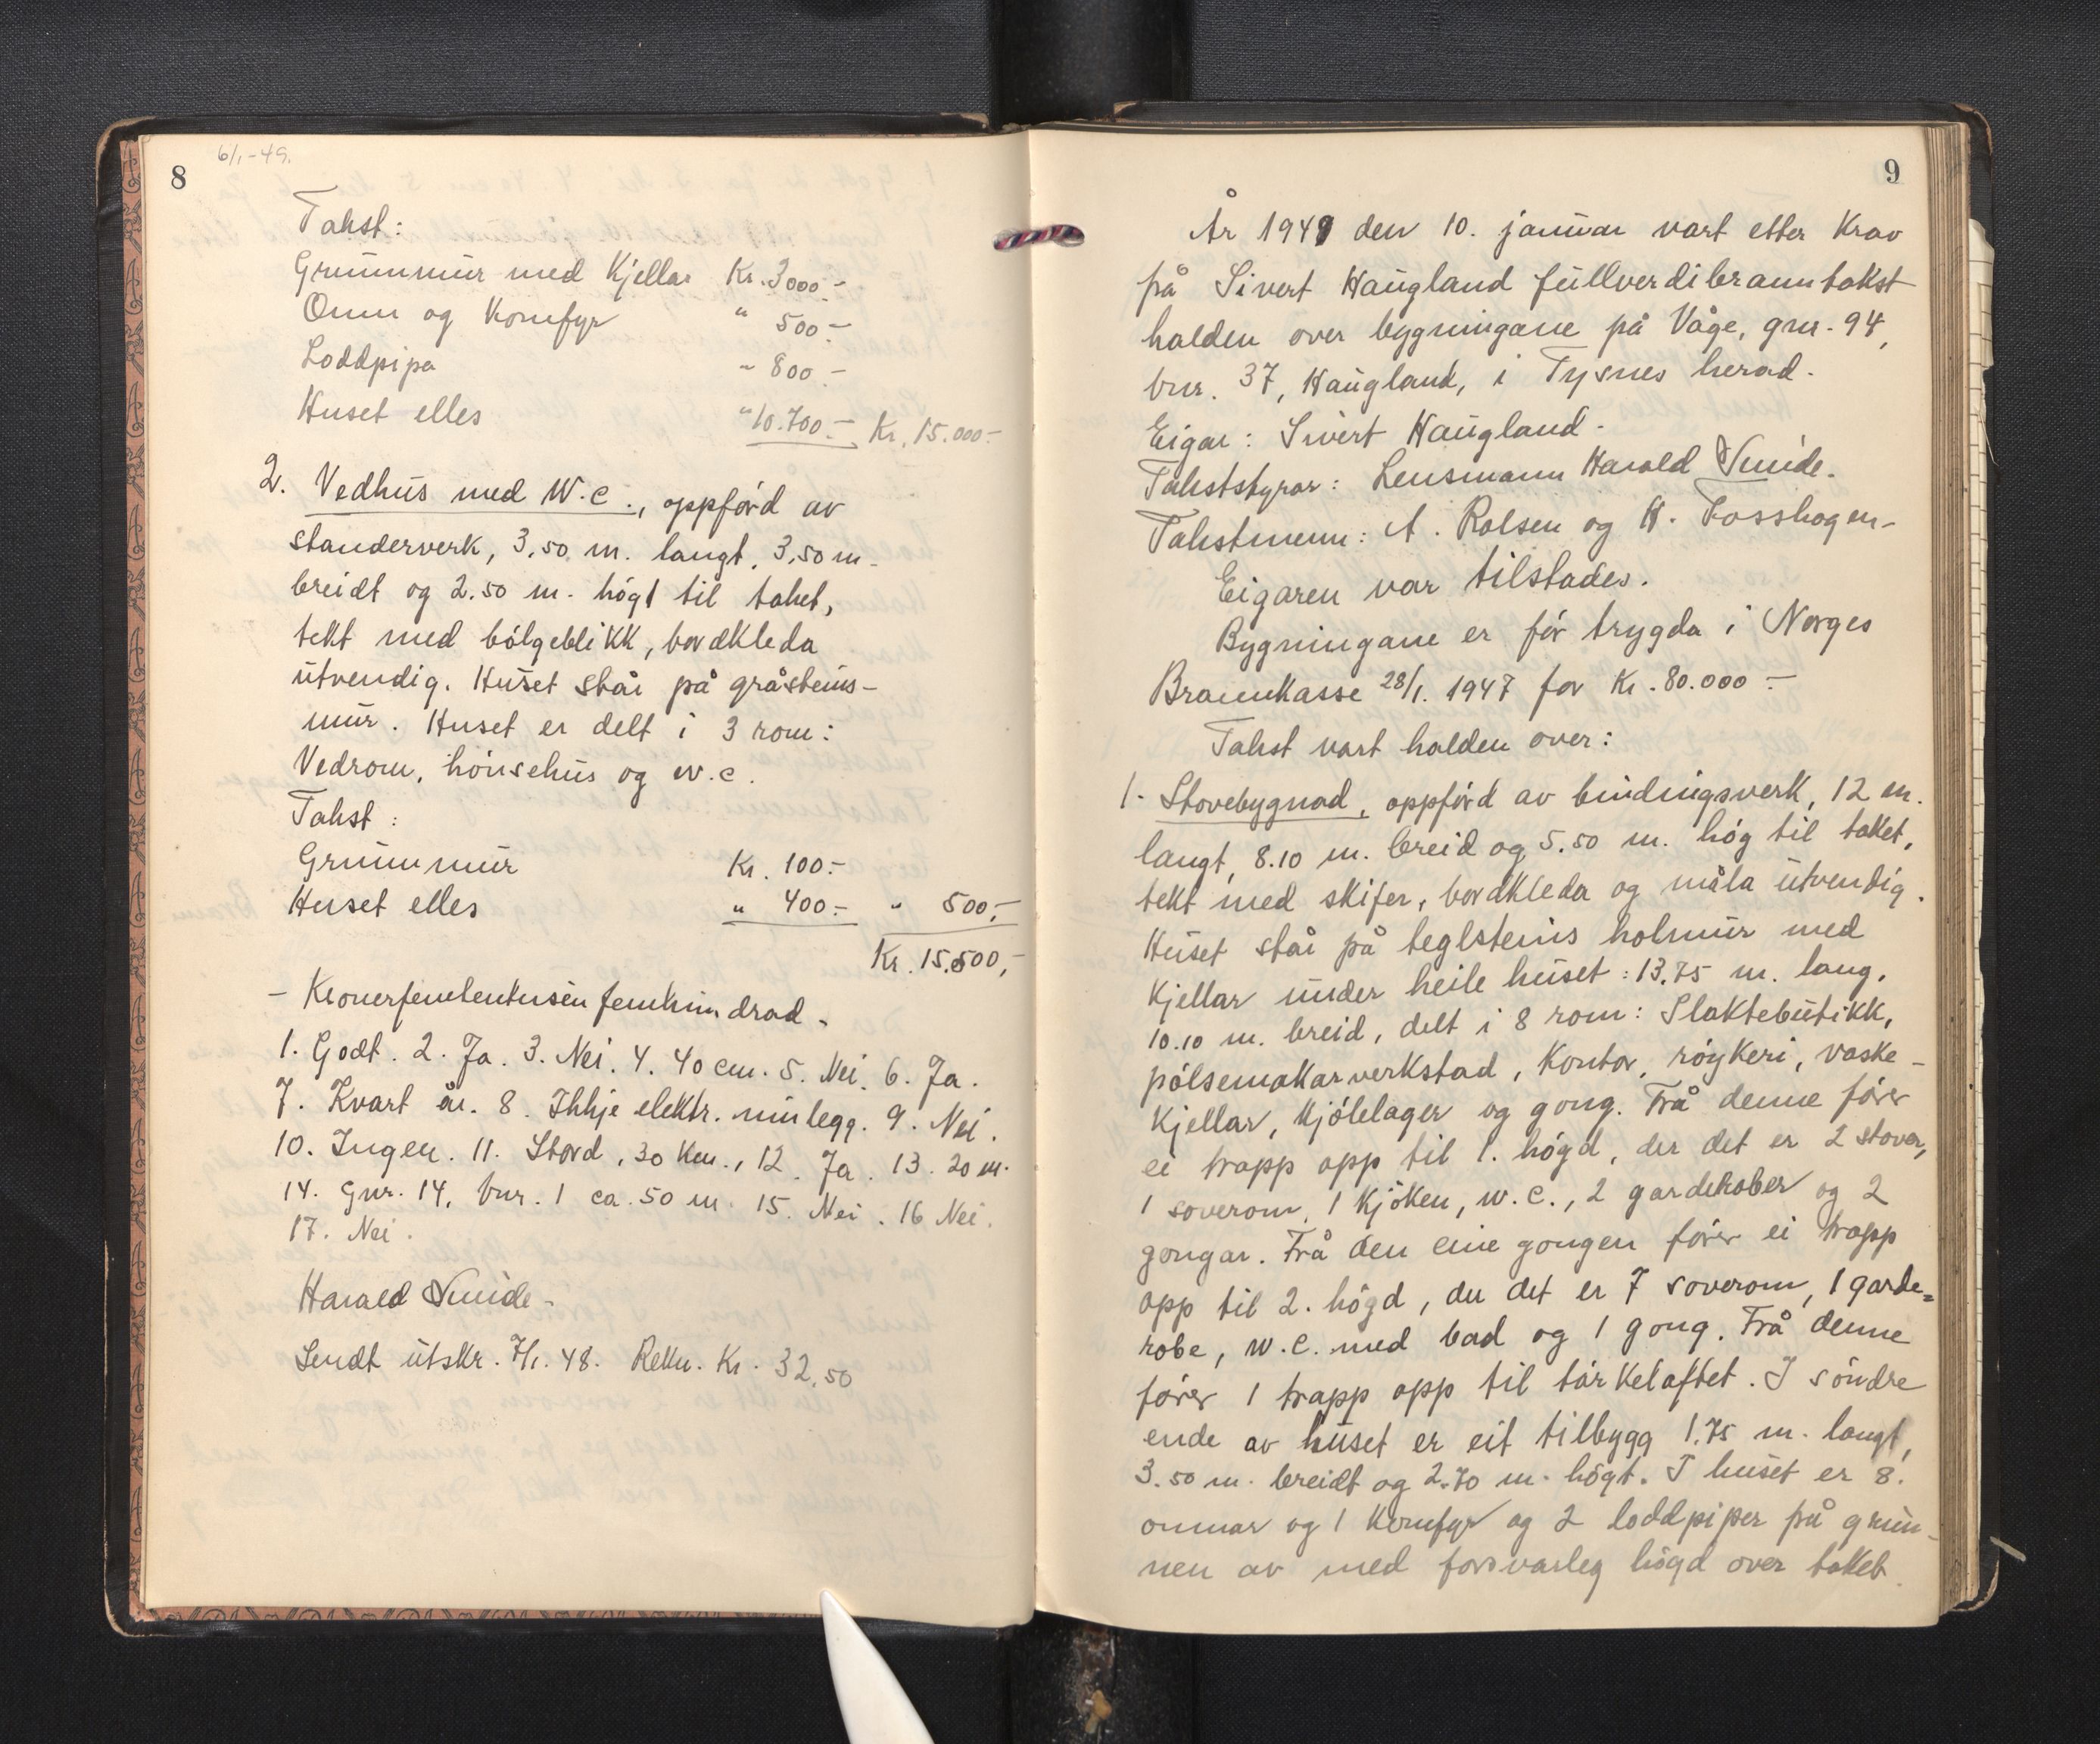 8
6/1-49.
Takst:
Grunnmur med Kjellar Kr. 3000.-
Omn og Komfyr " 500.-
Loddpipa " 800.-
Huset elles " 10.700.- Kr. 15.000.-
2. Vedhus med W.C., oppførd av
standerverk, 3,50 m. langt, 3,50 m.
breidt og 2.50 m. høgt til taket,
tekt med bølgeblikk, bordkleda
utvendig. Huset står på gråsteins-
mur. Huset er delt i 3 rom:
Vedrom, hønsehus og w.c.
Takst:
Grunnmur Kr. 100.-
Huset elles " 400.- " 500,-
Kr. 15.500,-
- Kronerfemtentusen femhundrad -
1. Godt. 2. Ja. 3. Nei. 4. 40 cm. 5. Nei. 6. Ja.
7. Kvart år. 8. Ikkje elektr. innlegg. 9. Nei.
10. Ingen. 11. Stord, 30 km., 12. Ja. 13. 20 m.
14. Gnr. 14, bnr. 1 ca. 50 m. 15. Nei. 16 Nei.
17. Nei.
Harald Sunde-
Sendt utskr. 7/1. 48. Rekn. Kr. 32,50
9
År 1949 den 10. januar vart etter Krav
på Sivert Haugland fullverdibranntakst
halden over bygningane på Våge, gnr. 94,
bnr. 37, Haugland, i Tysnes herad.
Eigar: Sivert Haugland.
Takststyrar: Lensmann Harald Sunde.
Takstmenn: A. Rolsen og H. Fosshagen-
Eigaren var tilstades.
Bygningane er før trygda i Norges
Brannkasse 28/1. 1947 for Kr. 80.000.-
Takst vart halden over:
1. Stovebygnad, oppførd av bindingsverk, 12 m.
langt, 8.10 m. breid og 5.50 m. høg til taket,
tekt med skifer, bordkleda og måla utvendig.
Huset står på teglsteins holmur med
Kjellar under heile huset: 13,75 m. lang,
10.10 m. breid, delt i 8 rom: Slaktebutikk,
pølsemakarverkstad, Kontor, røykeri, vaske-
Kjellar, Kjølelager og gong. Frå denne fører
ei trapp opp til 1. høgd, der det er 2 stover,
1 soverom, 1 Kjøken, w.c., 2 gardekober og 2
gongar. Frå den eine gongen fører ei trapp
opp til 2. høgd, der det er 7 soverom, 1 garde=
robe, w.c. med bad og 1 gong. Frå denne
fører 1 trapp opp til tørkeloftet. I søndre
ende av huset er eit tilbygg 1.75 m. langt,
3.50 m. breidt og 2.70 m. høgt. I huset er 8.
omnar og 1 Komfyr og 2 loddpiper på grun-
nen av med forsvarleg høgd over taket